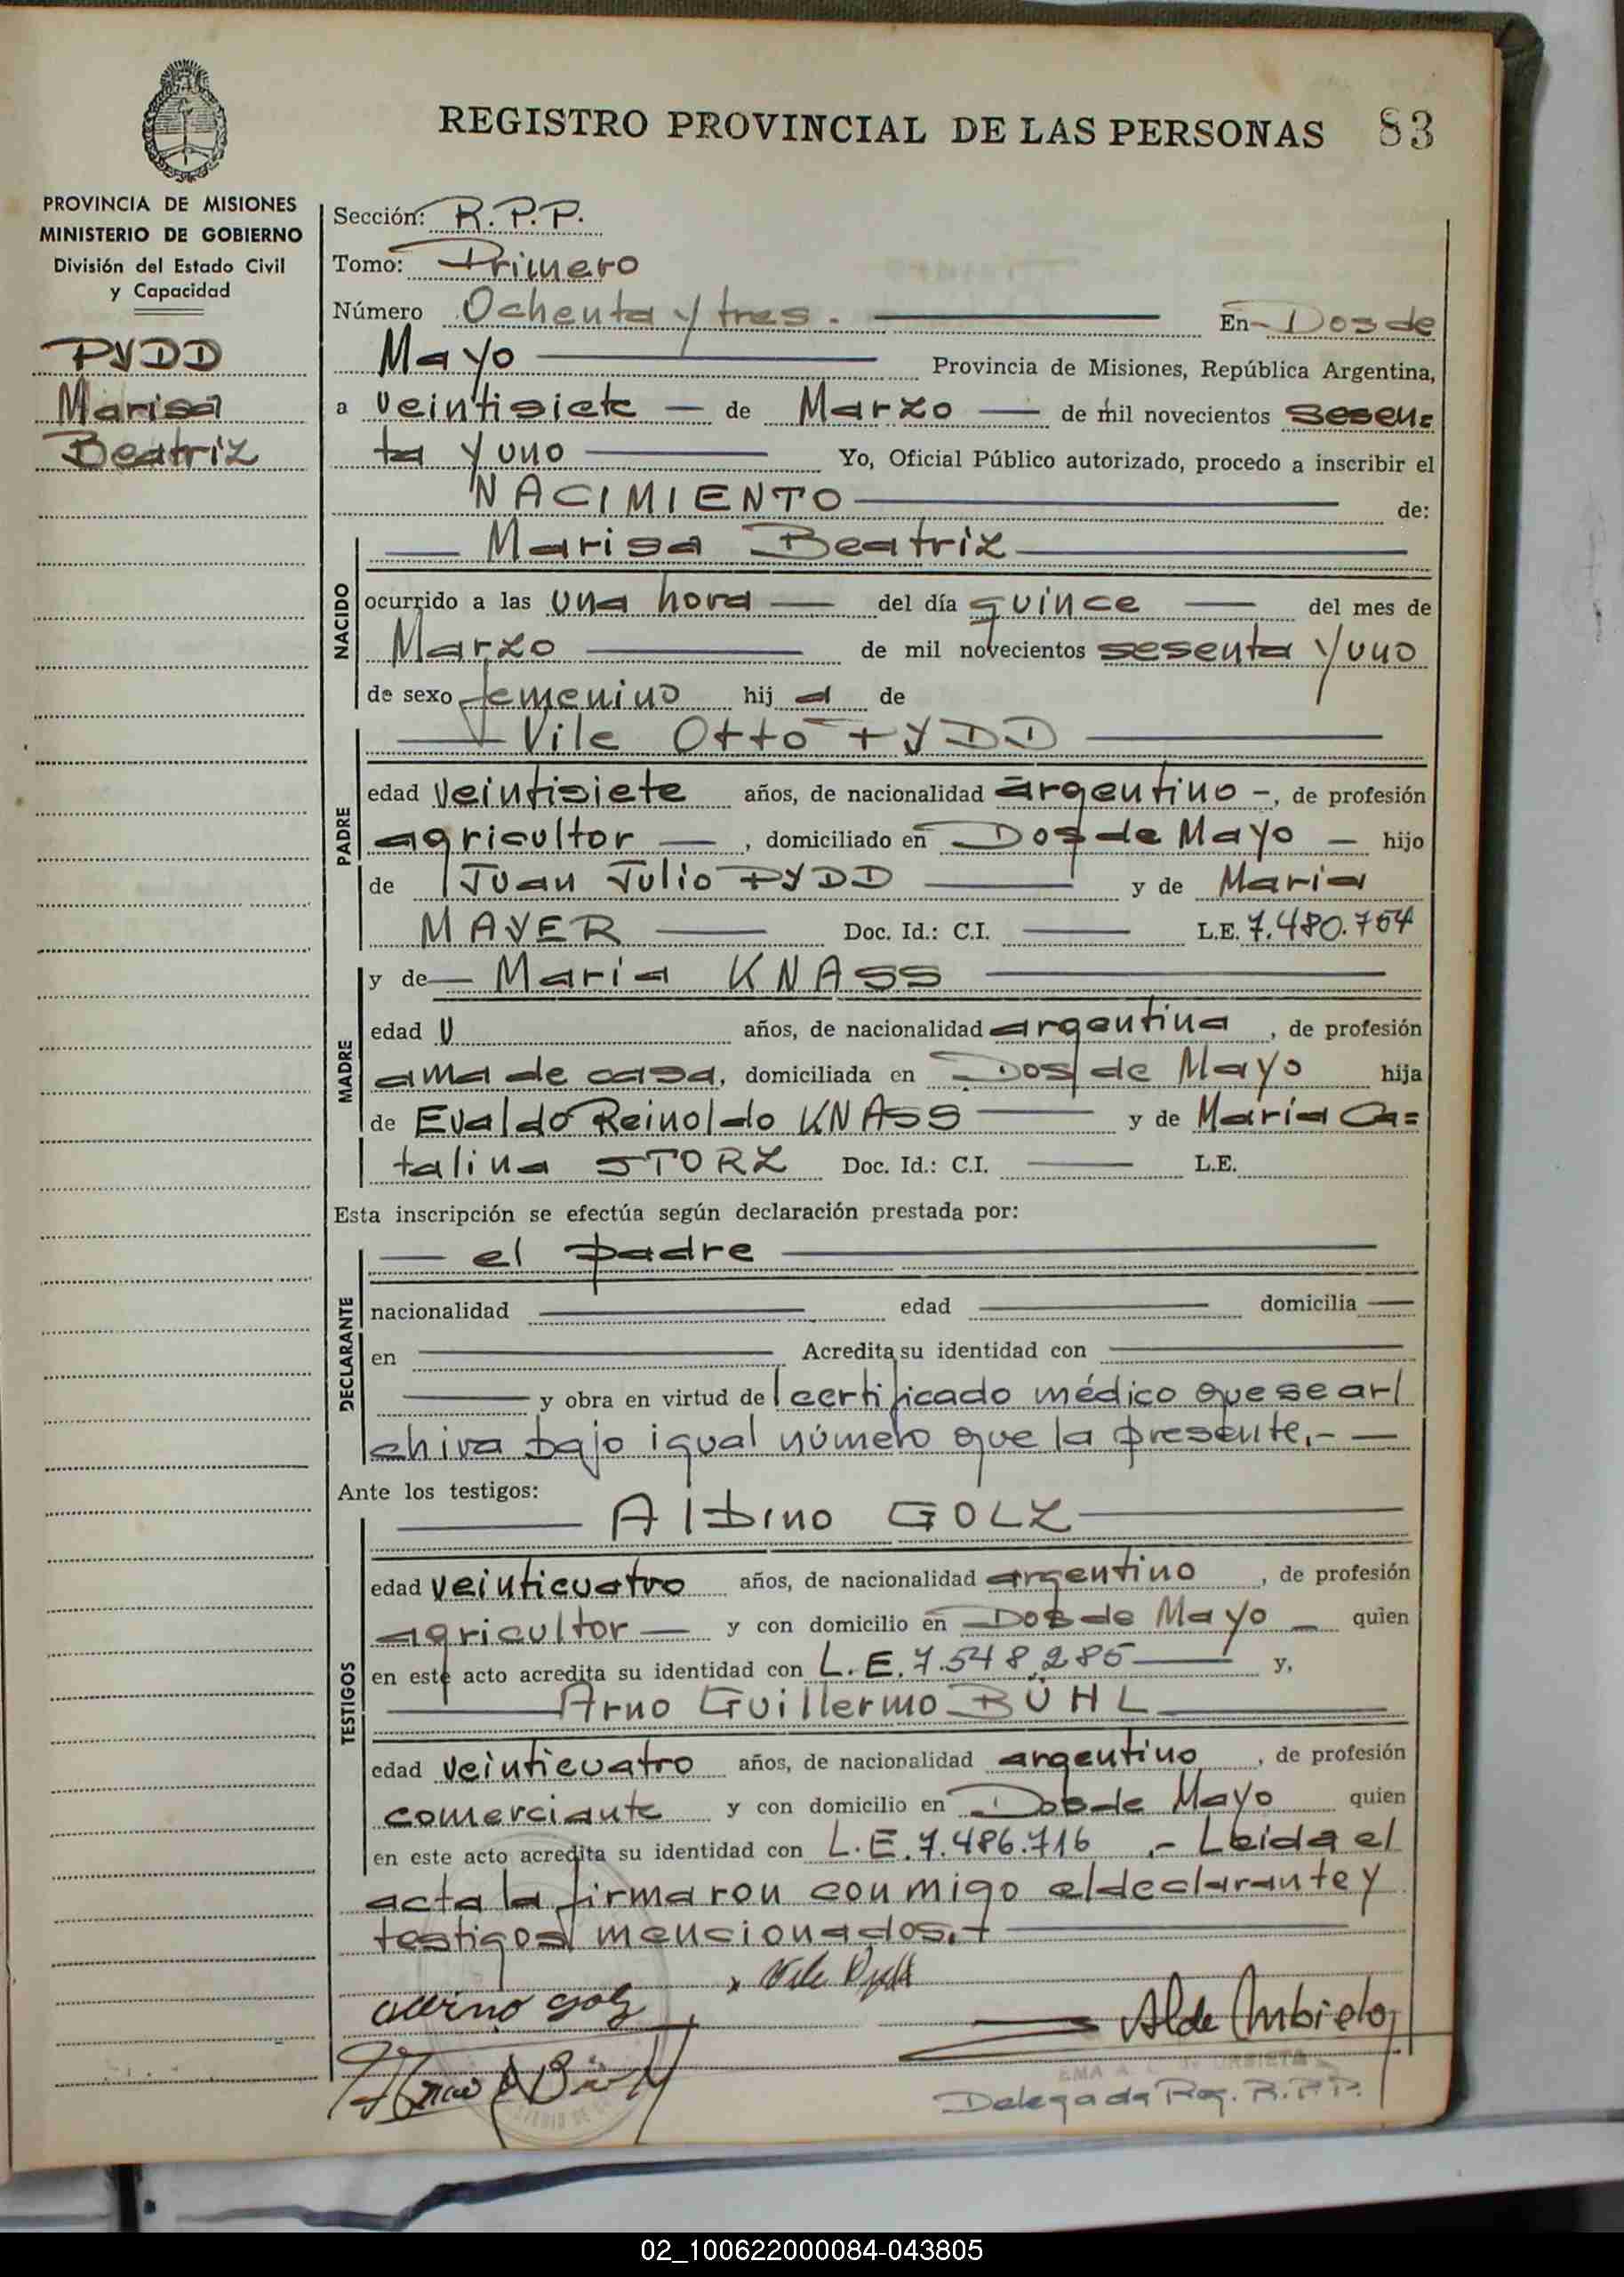 REGISTRO PROVINCIAL DE LAS PERSONAS 83
PROVINCIA DE MISIONES
MINISTERIO DE GOBIERNO
División del Estado Civil
y Capacidad
PYDD
Marisa
Beatriz
Sección: R.P.P.
Tomo: Primero
Número Ochenta y tres.- En Dos de
Mayo Provincia de Misiones, República Argentina,
a veintisiete de Marzo de mil novecientos sesen=
ta y uno Yo, Oficial Público autorizado, procedo a inscribir el
NACIMIENTO de:
NACIDO
Marisa Beatriz
ocurrido a las una hora del día quince del mes de
Marzo de mil novecientos sesenta y uno
de sexo femenino hij a de
PADRE
Vile Otto PYDD
edad veintisiete años, de nacionalidad argentino -, de profesión
agricultor , domiciliado en Dos de Mayo hijo
de Juan Julio PYDD y de Maria
MAYER Doc. Id.: C.I. L.E. 7.480.754
MADRE
y de Maria KNASS
edad V años, de nacionalidad argentina , de profesión
ama de casa, domiciliada en Dos de Mayo hija
de Evaldo Reinoldo KNASS y de María Ca=
talina STORZ Doc. Id.: C.I. L.E.
Esta inscripción se efectúa según declaración prestada por:
DECLARANTE
el padre
nacionalidad edad domicilia
en Acredita su identidad con
y obra en virtud de l certificado médico que se ar/
chiva bajo igual número que la presente.-
Ante los testigos:
TESTIGOS
Albino GOLZ
edad veinticuatro años, de nacionalidad argentino , de profesión
agricultor y con domicilio en Dos de Mayo quien
en este acto acredita su identidad con L.E. 7.548.285 y,
Arno Guillermo BÜHL
edad veinticuatro años, de nacionalidad argentino , de profesión
comerciante y con domicilio en Dos de Mayo quien
en este acto acredita su identidad con L.E. 7.486.716 .- Leida el
acta la firmaron conmigo el declarante y
testigos mencionados.-
Delegada Reg. R.P.P.
02_100622000084-043805